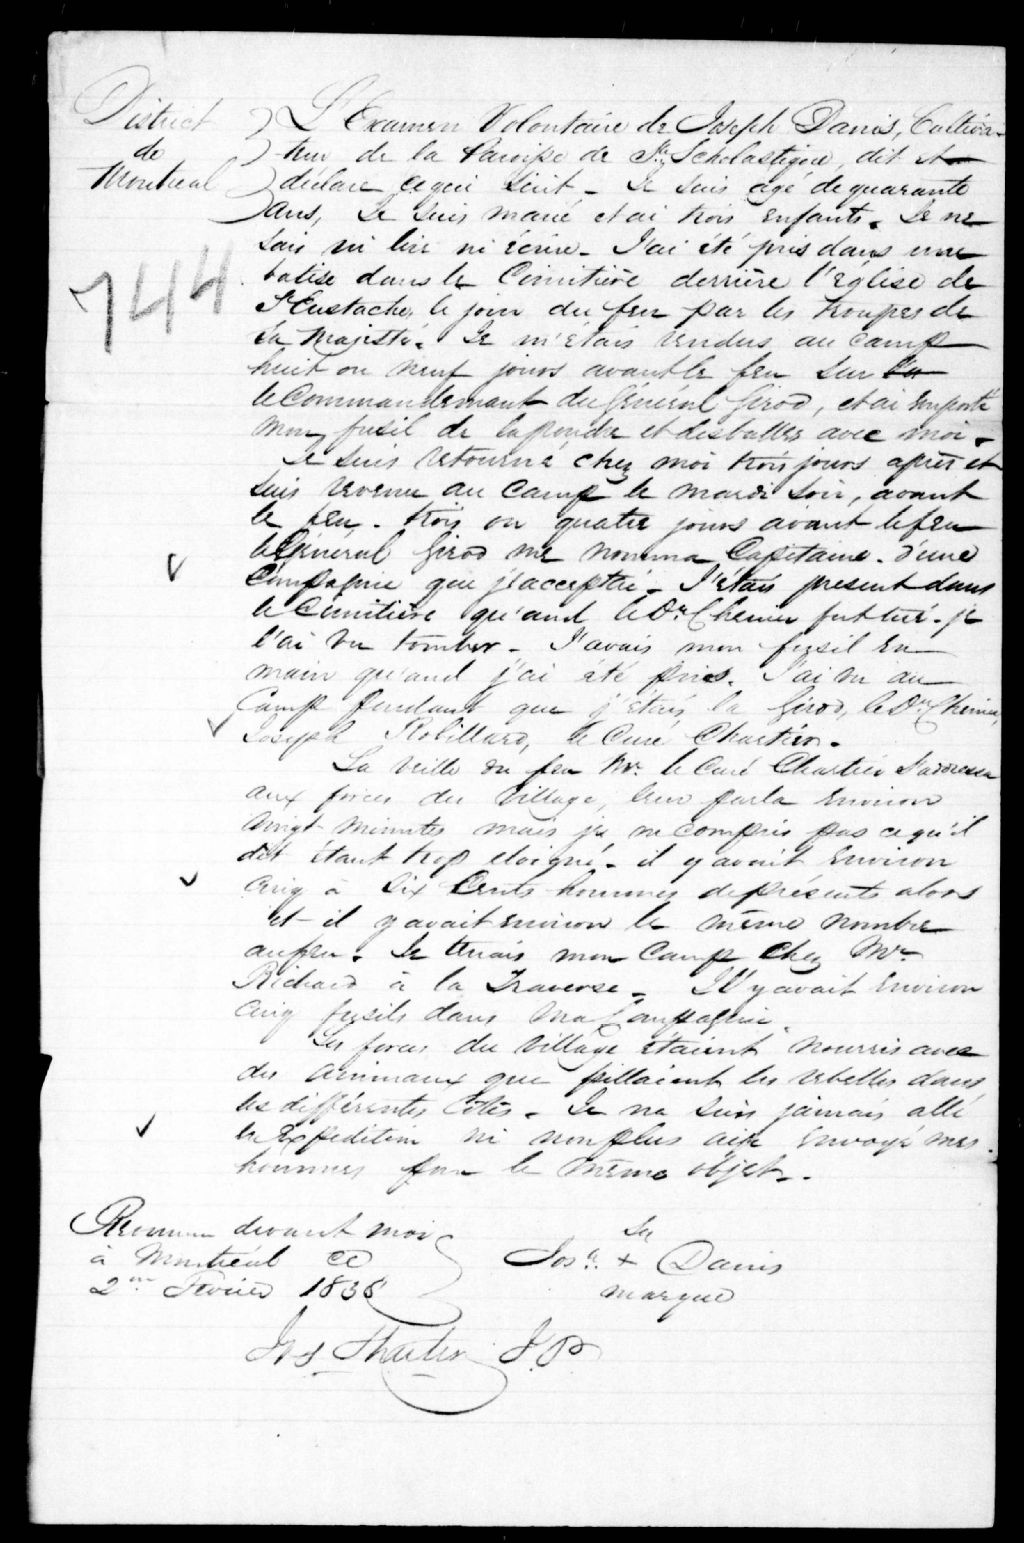 District
de
Montreal
744
L'Examen Volontaire de Joseph Danis, Cultiva-
teur de la Paroisse de Ste Scholastique, dit et
déclare cequi suit - Je suis agé de quarante
ans, Je suis marié et ai trois enfants. Je ne
sais ni lire ni écrire - J'ai été pris dans une
batise dans le Cimitière derrière l'Eglise de
St Eustache, le jour du feu par les troupes de
Sa Majesté. Je m'étais rendus au camp
huit ou neuf jours avant le feu sur
le Commandemant du Géneral Girod, et ai emporté
mon fusil de la poudre et des balles avec moi.
Je suis retourné chez moi trois jours après et
suis revenu au Camp le mardi soir, avant
le feu - trois ou quatre jours avant le feu
le Général Girod me nomma Capitaine d'une
Compagnie que j'acceptai - J'étais present dans
le Cimitière qu'and le Dr. Chenier fut tué - je
l'ai vu tomber - J'avais mon fusil en
main qu'and j'ai été pris. J'ai vu au
Camp pendant que j'étais la Girod, le Dr. Chenier,
Joseph Robillard, le Curé Chartier.
La veille du feu Mr. le Curé Chartier s'addressa
aux forces du Village, leur parla environ
vingt minutes mais je ne compris pas ce qu'il
dit étant trop eloigné - il y avait environ
cinq à six Cents hommes de présents alors
et il y avait environ le même nombre
au feu. Je tenais mon Camp chez Mr.
Richard à la Traverse - Il y avait environ
cinq fusils dans ma Compagnie.
Les forces du Village étaient nourris avec
des animaux que pillaient les rebelles dans
les différentes Côtes - Je ne suis jamais allé
en Expedition ni non plus envoyé mes
hommes pour le même objet.
Reconnu devant moi
à Montréal ce
2me Février 1838
Sa
Josh. + Danis
marque
J.P.